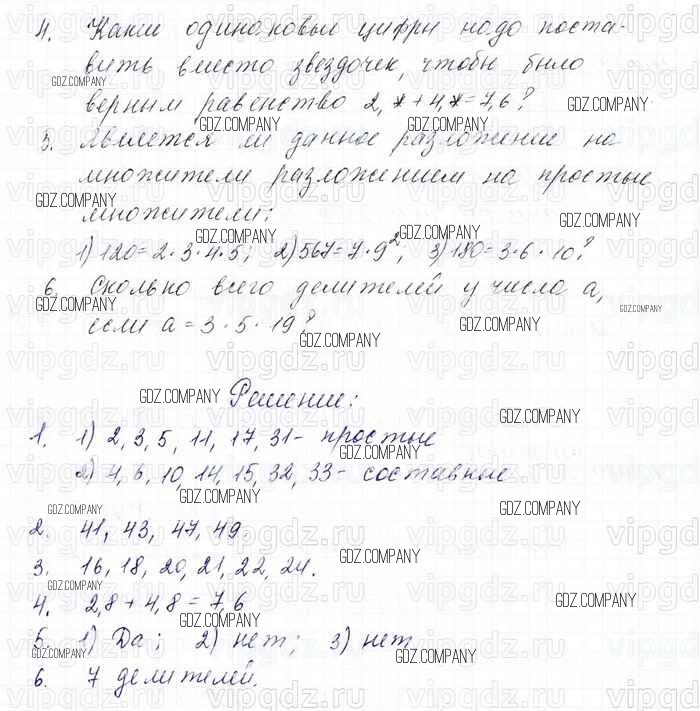 4. Какие одинаковые цифры надо поста-
вить вместо звездочек, чтобы было
верным равенство 2,* + 4,* = 7,6?
5. Является ли данное разложение на
множители разложением на простые
множители:
1) 120 = 2 · 3 · 4 · 5; 2) 567 = 7 · 9²; 3) 180 = 3 · 6 · 10?
6. Сколько всего делителей у числа a,
если a = 3 · 5 · 19?
Решение:
1. 1) 2, 3, 5, 11, 17, 31 - простые
2) 4, 6, 10, 14, 15, 32, 33 - составные
2. 41, 43, 47, 49.
3. 16, 18, 20, 21, 22, 24.
4. 2,8 + 4,8 = 7,6
5. 1) Да; 2) нет; 3) нет
6. 7 делителей.
GDZ.COMPANY
vipgdz.ru